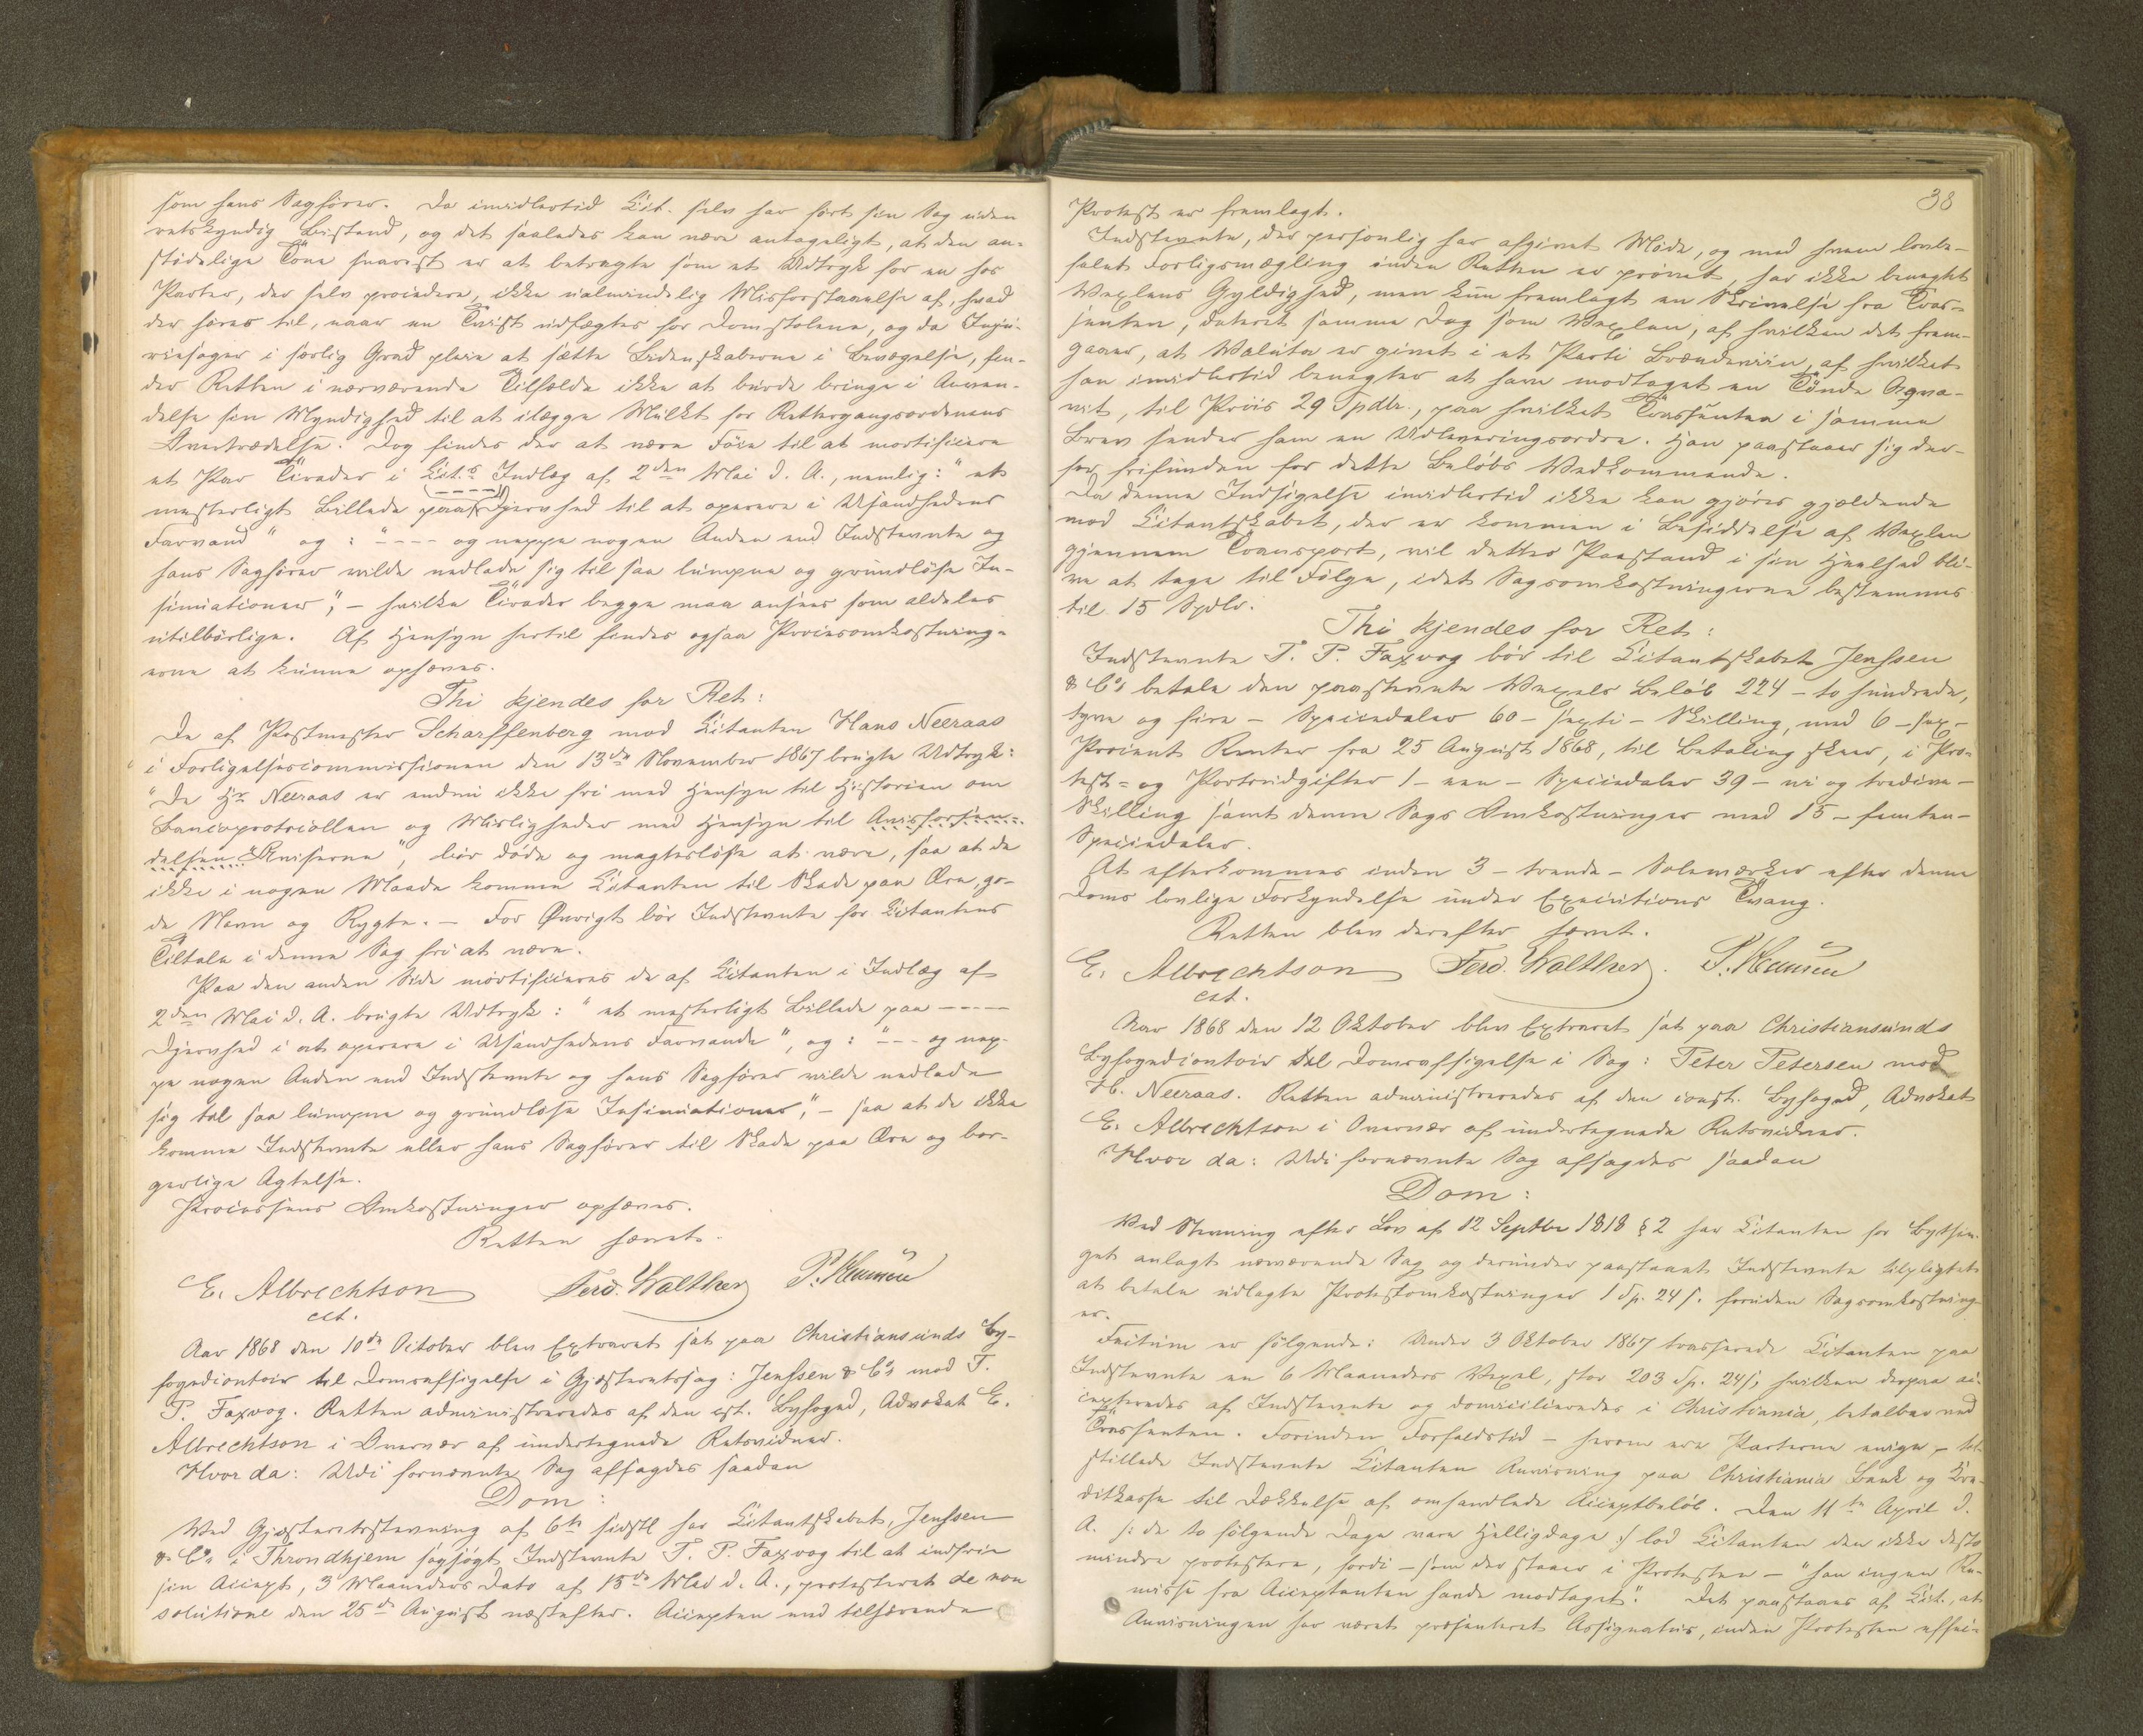 som hans Sagfører. Da imidlertid Cit. selv har ført sin Sag uden
retskyndig Bistand, og det saaledes kan være antageligt, at den an-
stødelige Tone snarest er at betragte som et Udtryk for en hos
Parter, der selv procedere, ikke ualmindelig Misforstaaelse af, hvad
der hører til, naar en Tvist udfægtes for Domstolene, og da Inju-
riesager i særlig Grad pleie at sætte Lidenskaberne i Bevægelse, fin-
der Retten i nærværende Tilfælde ikke at burde bringe i Anven-
delse sin Myndighed til at ilægge Mulkt for Rettergangsordenens
Overtrædelse. Dog findes der at være Föie til at mortificere
et Par Tirader i Cit.s Indlæg af 2den Mai d. A., nemlig: "et
mesterligt Billede paa ---- Djervhed til at operere i Usandhedens
Farvand" og: "---- og neppe nogen Anden end Indstevnte og
hans Sagfører vilde nedlade sig til saa lumpne og grundløse In-
sinuationer", – hvilke Tirader begge maa ansees som aldeles
utilbørlige. Af Hensyn hertil findes ogsaa Procesomkostning-
erne at kunne ophæves.
Thi kjendes for Ret:
De af Postmester Scharffenberg mod Citanten Hans Neeraas
i Forligelsescommissionen den 13de November 1867 brugte Udtryk:
"Da Hr. Neeraas er endnu ikke fri med Hensyn til Historien om
Bancoprotocollen og Misligheder med Hensyn til Avisforsen-
delsen "Aviserne", bør døde og magtesløse at være, saa at de
ikke i nogen Maade komme Citanten til Skade paa Ære, go-
de Navn og Rygte. – For Øvrigt bør Indstevnte for Citantens
Tiltale i denne Sag fri at være.
Paa den anden Side mortificeres de af Citanten i Indlæg af
2den Mai d. A. brugte Udtryk: "et mesterligt Billede paa -----
Djervhed i at operere i Usandhedens Farvande", og: "--- og nep-
pe nogen Anden end Indstevnte og hans Sagfører vilde nedlade
sig til saa lumpne og grundløse Insinuationer," – saa at de ikke
komme Indstevnte eller hans Sagfører til Skade paa Ære og bor-
gerlige Agtelse.
Processens Omkostninger ophæves.
Retten hævet.
E. Albrechtson Ferd. Walther P. Hansen
cst.
Aar 1868 den 10de October blev Extraret sat paa Christiansunds By-
fogedcontoir til Domsafsigelse i Gjæsteretssag: Jenssen & Co. mod T.
P. Faxvog. Retten administreredes af den cst. Byfoged, Advokat E.
Albrechtson i Overvær af undertegnede Retsvidner.
Hvor da: Udi fornævnte Sag afsagdes saadan
Dom:
Ved Gjæsteretsstevning af 6te sidstl har Citantskabet, Jenssen
& Co. i Throndhjem sagsøgt Indstevnte T. P. Faxvog til at indfrie
sin Accept, 3 Maaneders Dato af 15de Mai d. A., protesteret de non
solutione den 25de August næstefter. Accepten med tilhørende
38
Protest er fremlagt.
Indstevnte, der personlig har afgivet Møde, og med hvem lovbe-
falet Forligsmægling inden Retten er prøvet, har ikke benegtet
Vexlens Gyldighed, men kun fremlagt en Skrivelse fra Tras-
senten, dateret samme Dag som Vexlen, af hvilken det frem-
gaaer, at Valuta er givet i et Parti Brændeviin, af hvilket
han imidlertid benegter at have modtaget en Tönde Aqva-
vit, til Priis 29 Spdlr., paa hvilket Trassenten i samme
Brev sender ham en Udleveringsordre. Han paastaaer sig der-
for frifunden for dette Beløbs Vedkommende.
Da denne Indsigelse imidlertid ikke kan gjøres gjældende
mod Citantskabet, der er kommen i Besiddelse af Vexlen
gjennem Transport, vil dettes Paastand i sin Heelhed bli-
ve at tage til Følge, idet Sagsomkostningerne bestemmes
til 15 Spdlr.
Thi kjendes for Ret:
Indstevnte T. P. Faxvog bör til Citantskabet Jenssen
& Co. betale den paastevnte Vexels Beløb 224 – to hundrede,
tyve og fire – Speciedaler 60 – sexti – Skilling, med 6 – sex –
Procent Renter fra 25 August 1868, til Betaling skeer, i Pro-
test- og Portoudgifter 1 – een – Speciedaler 39 – ni og tredive –
Skilling samt denne Sags Omkostninger med 15 – femten –
Speciedaler.
At efterkommes inden 3 – trende – Solemærker efter denne
Doms lovlige Forkyndelse under Executions Tvang.
Retten blev derefter hævet.
E. Albrechtson Ferd. Walther. P. Hansen
cst.
Aar 1868 den 12 Oktober blev Extraret sat paa Christiansunds
Byfogedcontoir til Domsafsigelse i Sag: Peter Petersen mod
H. Neeraas. Retten administreredes af den const. Byfoged, Advokat
E. Albrechtson i Overvær af undertegnede Retsvidner.
Hvor da: Udi fornævnte Sag afsagdes saadan
Dom:
Ved Stevning efter Lov af 12 Septbr 1818 § 2 har Citanten for Bythin-
get anlagt nærværende Sag og derunder paastaaet Indstevnte tilpligtet
at betale udlagte Protestomkostninger 1 Sp. 24 s. foruden Sagsomkostning-
er.
Factum er følgende: Under 3 Oktober 1867 trasserede Citanten paa
Indstevnte en 6 Maaneders Vexel, stor 203 Sp. 24 s, hvilken derpaa ac-
cepteredes af Indstevnte og domicilieredes i Christiania, betalbar ved
Trassenten. Forinden Forfaldstid – herom ere Parterne enige – til-
stillede Indstevnte Citanten Anvisning paa Christiania Bank og Kre-
ditkasse til Dækkelse af omhandlede Acceptbeløb. Den 11te April d.
A. /: de to følgende Dage vare Helligdage :/ lod Citanten den ikke desto
mindre protestere, fordi – som der staaer i Protesten – "han ingen Re-
misse fra Acceptanten havde modtaget." Det paastaaes af Cit., at
Anvisningen har været præsenteret Assignatus, inden Protesten effec-